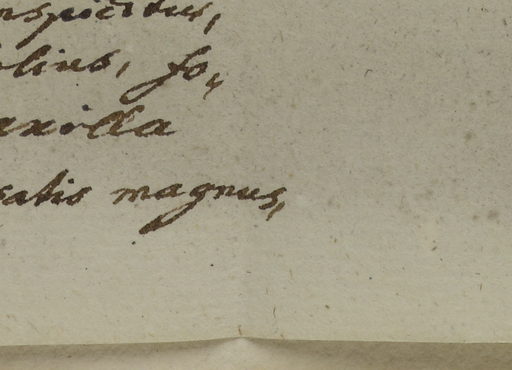 nspicitus,
olius, fo„
axilla
satis magnus,